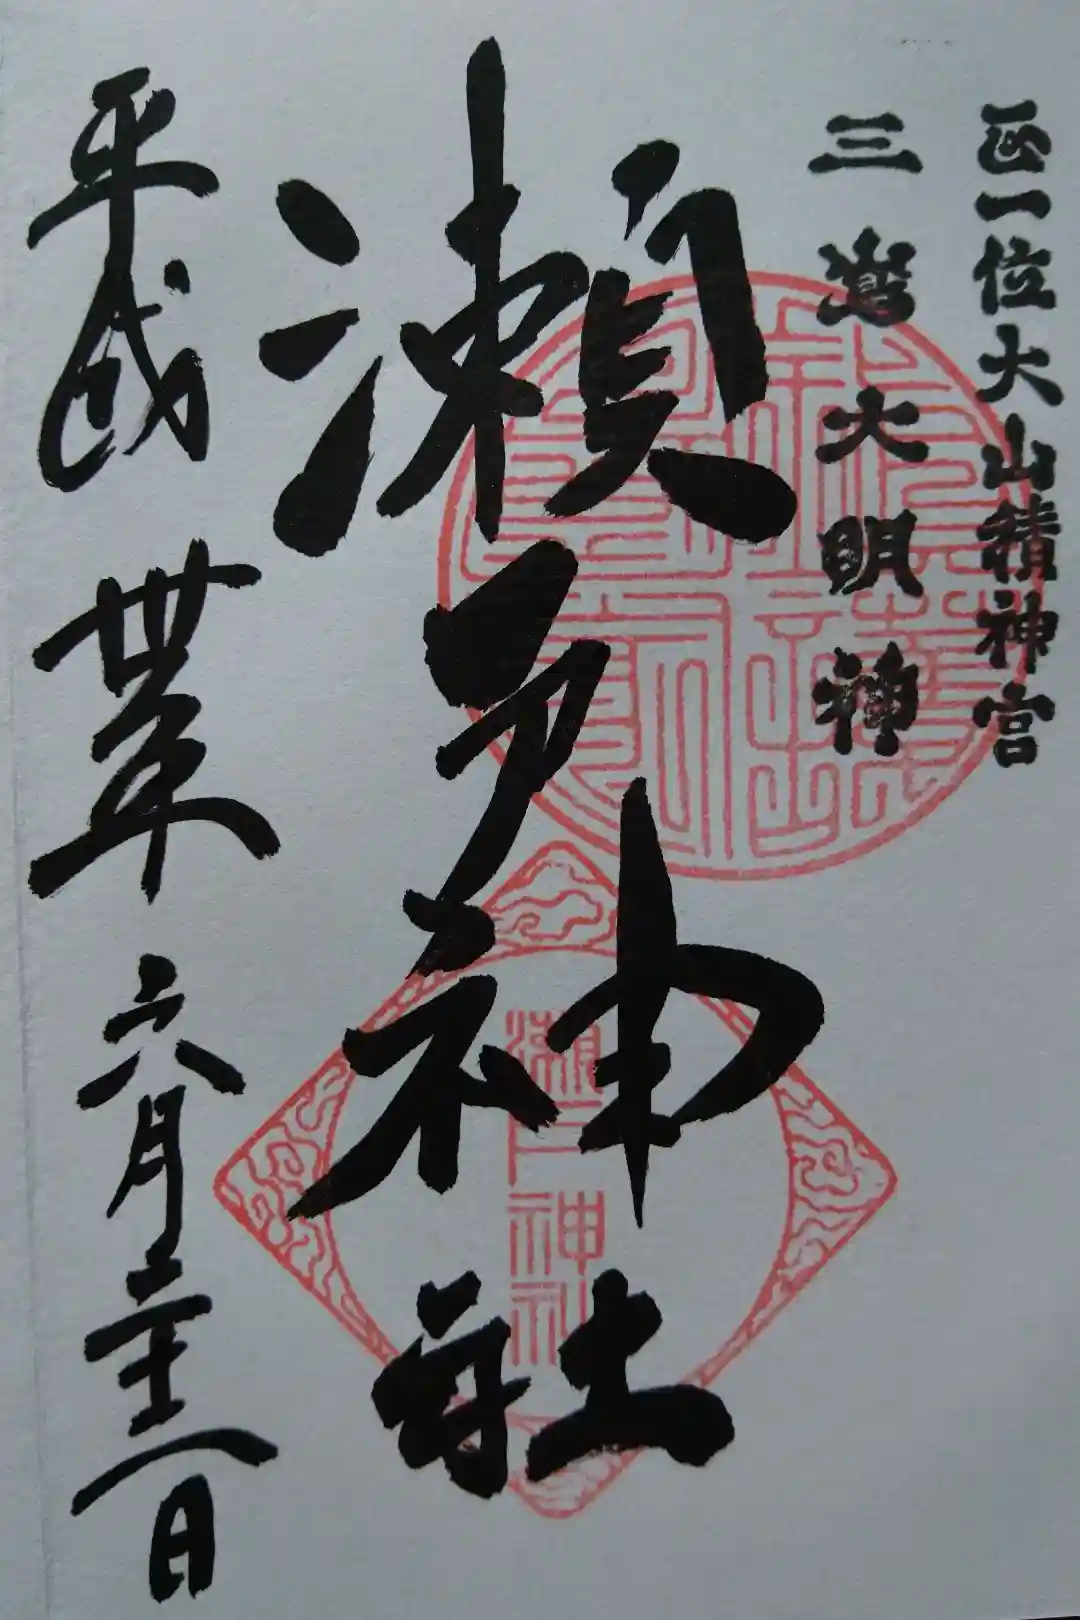 正一位大山積神宮
三嶌大明神
瀬戸神社
瀬戸神社
平成丗年六月 日